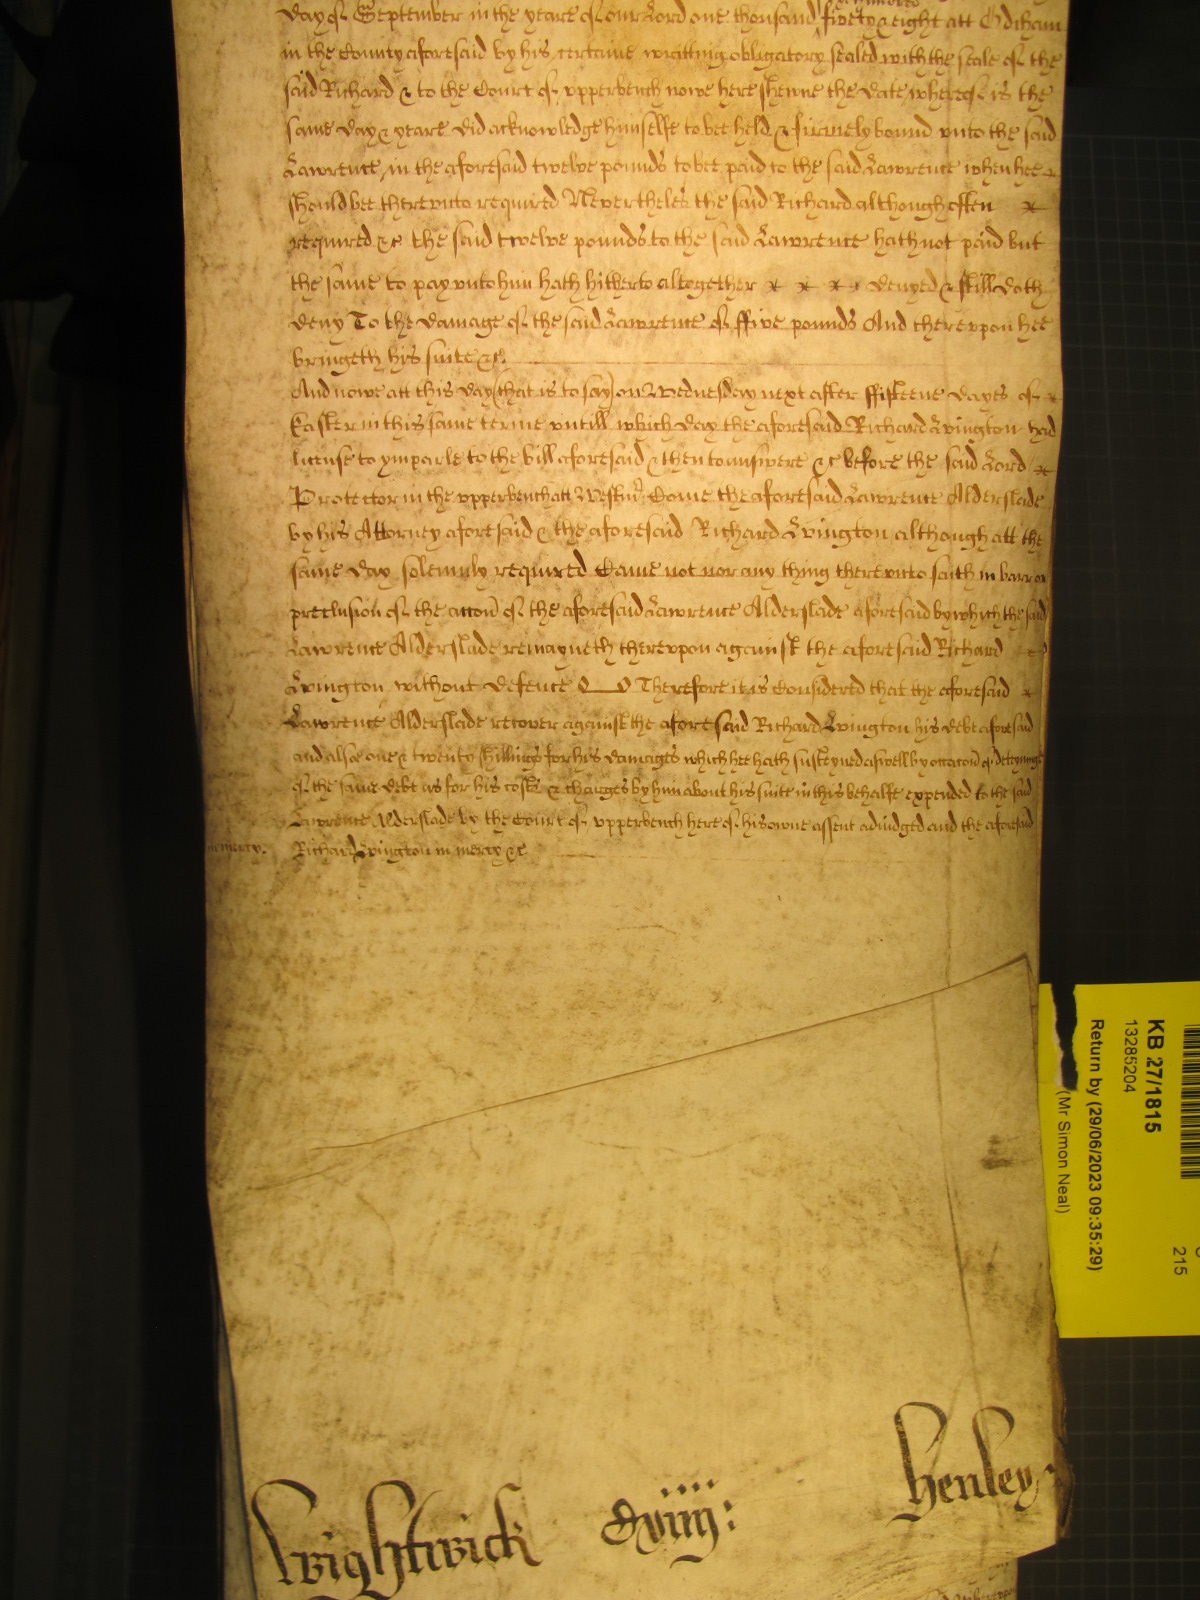 day of September in the yeare of our Lord one thousand hundred fivety & eight att Odiham
in the County aforesaid by his certaine writting obligatory sealed with the seale of the
said Richard & to the Court of upperbench nowe here shewne the date whereof is the
same day & yeare did acknowledge himselfe to bee held & firmely bound unto the said
Lawrence in the aforesaid twelve pounds to bee paid to the said Lawrence when hee
should bee thereunto required Nevertheles the said Richard although often
required &c the said twelve pounds to the said Lawrence hath not paid but
the same to pay unto him hath hitherto altogether denyed & still doth
deny To the damage of the said Lawrence of ffive pounds And thereupon hee
bringeth his suite &c.
And nowe att this day (that is to say) on Wednesday next after ffifteene dayes of
Easter in this same terme untill which day the aforesaid Richard Avington had
license to ymparle to the bill aforesaid & then to answere &c before the said Lord
Protector in the upperbench att Westmr Come the aforesaid Lawrence Alderslade
by his Attorney aforesaid & the aforesaid Richard Avington although att the
same day solemnly required Came not nor any thing thereunto saith in barr or
preclusion of the accon of the aforesaid Lawrence Alderslade aforesaid by which the said
Lawrence Alderslade remayneth thereupon against the aforesaid Richard
Avington without defence Therefore it is Considered that the aforesaid
Lawrence Alderslade recover against the aforesaid Richard Avington his debt aforesaid
and alsoe one & twenty shillings for his damages which hee hath susteyned aswell by occacon of deteyninge
of the same debt as for his costs & charges by him about his suite in this behalfe expended to the said
Lawrence Alderslade by the Court of upperbench here of his owne assent adiudged and the aforesaid
in mercy. Richard Avington in mercy &c
Wightwick Cxviiij: henley
KB 27/1815
13285204
Return by (29/06/2023 09:35:29)
(Mr Simon Neal)
215